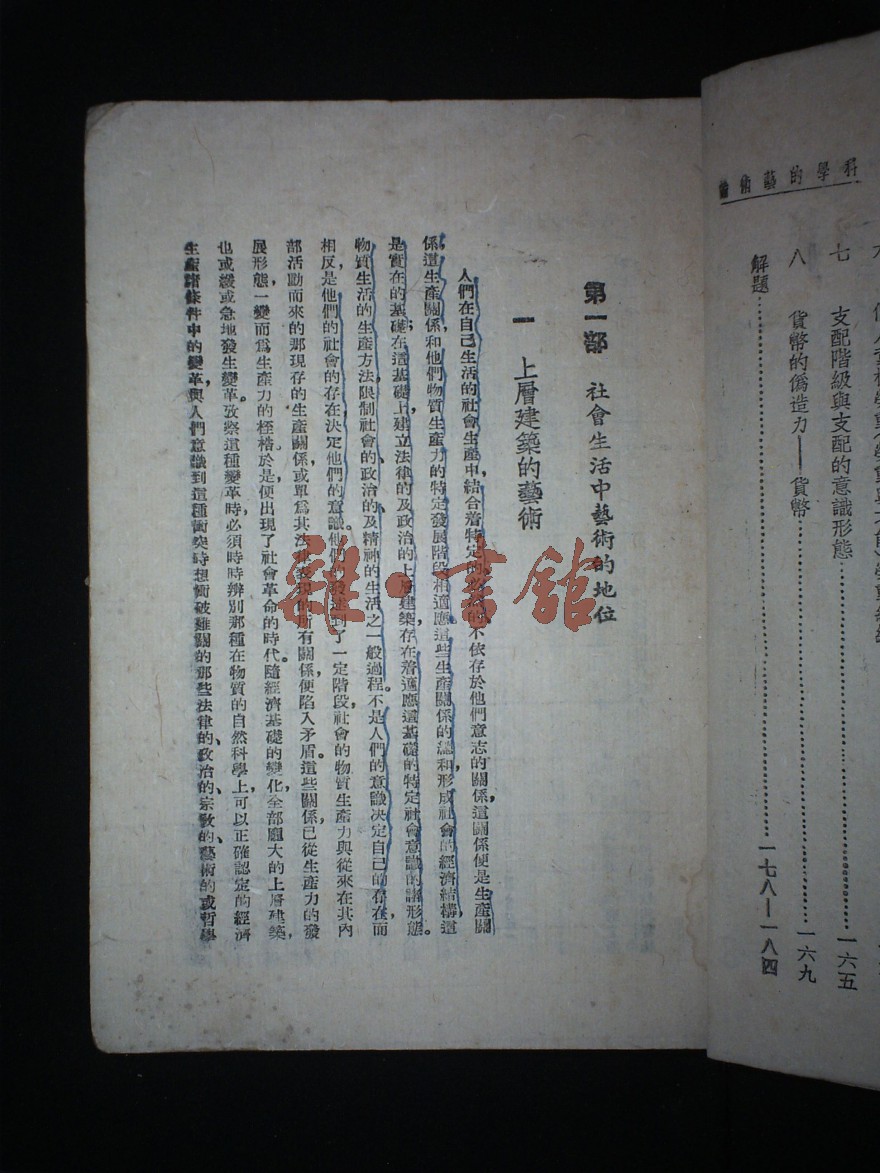 科學的藝術論
七 支配階級與支配的意識形態…………一六五
八 貨幣的僞造力——貨幣…………一六九
解題…………一七八—一八四
第一部 社會生活中藝術的地位
一 上層建築的藝術
人們在自己生活的社會生產中結合着特定的必然的不依存於他們意志的關係,這關係便是生產關
係,這生產關係和他們物質生產力的特定發展階段相適應,這些生產關係的總和形成社會的經濟結構,這
是實在的基礎,在這基礎上建立法律的及政治的上層建築,存在着適應這基礎的特定社會意識的諸形態。
物質生活的生產方法,限制社會的、政治的及精神的生活之一般過程。不是人們的意識決定自己的存在,而
相反,是他們的社會的存在決定他們的意識。他們的發達到了一定階段,社會的物質生產力與從來在其內
部活動而來的那現存的生產關係,或單爲其法律表現的所有關係,便陷入矛盾。這些關係,已從生產力的發
展形態,一變而爲生產力的桎梏。於是便出現了社會革命的時代。隨經濟基礎的變化,全部龐大的上層建築,
也或緩或急地發生變革。攷察這種變革時,必須時時辨別那種在物質的自然科學上,可以正確認定的經濟
生產諸條件中的變革,與人們意識到這種衝突時想衝破難關的那些法律的、政治的、宗敎的、藝術的或哲學
雜·書館